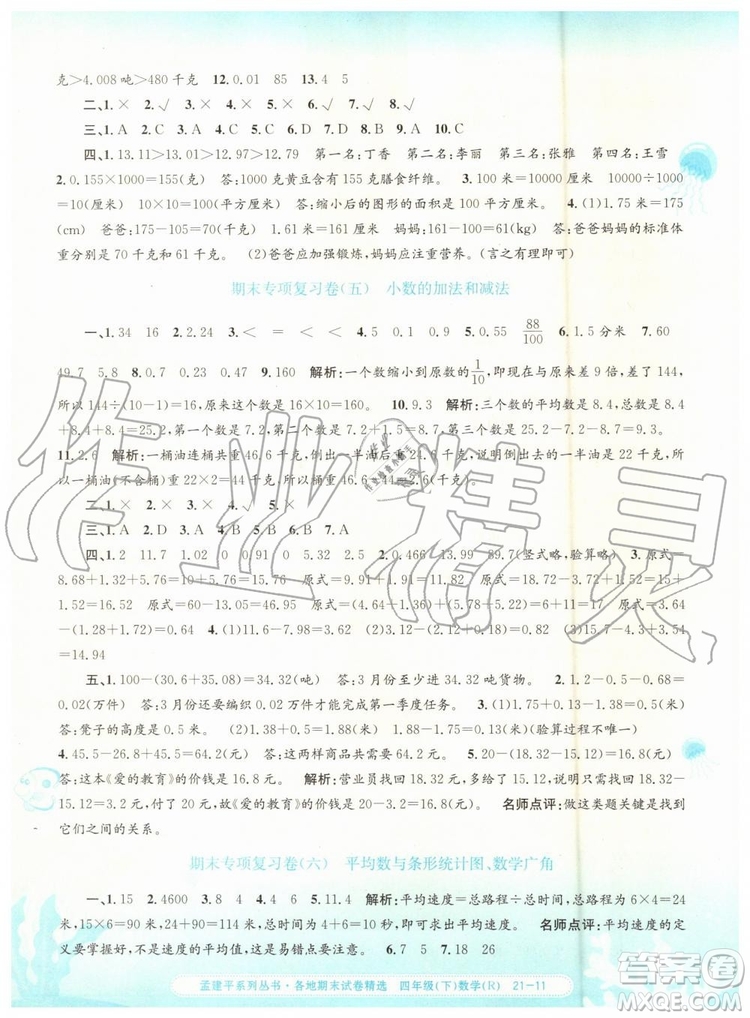 克＞4.008吨＞480千克 12.0.01 85 13.4 5
二、1.× 2.√ 3.× 4.√ 5.× 6.√ 7.√ 8.√
三、1.A 2.C 3.A 4.D 5.A 6.D 7.A 8.B 9.A 10.C
四、1.13.11＞12.96＞12.91＞12.79 第一名:丁香 第二名:李丽 第三名:张雅 第四名:王雪
2.0.155×1000=155(克) 答:1000克黄豆含有155克膳食纤维。 3.100米=10000厘米 10000÷1000
=10(厘米) 10×10=100(平方厘米) 答:缩小后的图形的面积是100平方厘米。 4.(1)1.75米=175
(cm) 爸爸:175-105=70(千克) 1.61米=161(cm) 妈妈:161-100=61(kg) 答:爸爸妈妈的标准体
重分别是70千克和61千克。 (2)爸爸应加强锻炼,妈妈应注重营养。(言之有理即可)
期末专项复习卷(五) 小数的加法和减法
一、1.34 16 2.2.24 3.＜ ＝ ＝ ＜ 4.5 0.1 0.9 5.0.55 88/100 6.1.5分米 7.60
49.7 5.8 8.0.7 0.23 0.23 0.47 9.160 解析:一个数缩小到原数的1/10,即现在是原来差了144,
所以144÷(10-1)=16,原来这个数是16×10=160。 10.9.3 解析:三个数的平均数是8.4,总数是
8.4+8.4+8.4=25.2,第一个数是9.2,第二个数是6.7,所以第三个数是25.2-9.2-6.7=9.3。
11.2.6 解析:一桶油连桶共重46.6千克,倒出一半油后重24.6千克,倒出的一半油是46.6-24.6=
22(千克),一桶油(不含桶)重22×2=44(千克),所以桶重46.6-44=2.6(千克)。
二、1.× 2.√ 3.× 4.√ 5.×
三、1.D 2.A 3.C 4.D 5.A 6.B 7.A
四、1.2 11.7 1.02 0.91 0 5.2 2.0.466 13.99 89.7(竖式略,验算略) 3.原式=
8.68+(4.28+5.72)=18.68 原式=12-(5.2+4.8)=2 原式=15.89-5.89-6.75=3.25 原式=3.64
-(1.28+1.72)=0.64 4.(1)11.6-7.98=3.62 (2)9.4-(0.4+1.32)=7.68 (3)8.56+(8.56-2.18)
=14.94
五、1.100-(30.6+35.08)=34.32(吨) 答:3月份至少进34吨货物。 2.1.2-0.5-0.68=
0.02(万件) 答:3月份还要编织0.02万件才能完成第一季度任务。
答:凳子的高度是0.5米。
4.45.5-26.8+45.5=64.2(元) 答:这两样商品共需要64.2元。
答:这本《爱的教育》的价钱是16.8元。 解析:营业员找回18.32-15.12=3.2(元),实际应该找回
3.2元,付了20元,故《爱的教育》的价钱是20-3.2=16.8(元)。 名师点评:做这类题关键是找到
它们之间的关系。
期末专项复习卷(六) 平均数与条形统计图、数学广角
一、1.15 2.4600 3.1.92 4.8 5.11.4 解析:平均速度=总路程÷总时间,总路程为6×4=24
米,15×6=90米,24+90=114米,总时间为4+6=10秒,114÷10=11.4米/秒。 名师点评:平均速度的定
义要掌握好,并不是速度的平均值,这是易错点要注意。 6.7 5 7.18 26
孟建平系列丛书·各地期末试卷精选 四年级(下)数学(R) 21-11
作业精灵
答案圈